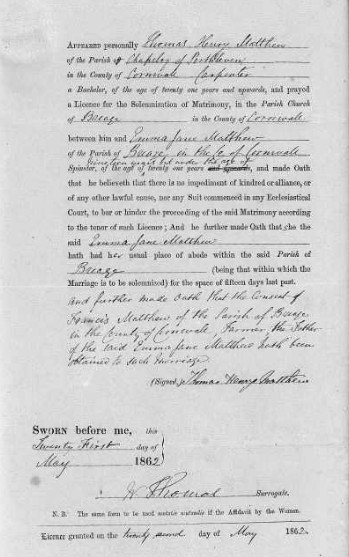 APPEARED personally Thomas Henry Matthew
of the Parish of Chapelry of Porthleven
in the County of Cornwall Carpenter
a Bachelor, of the age of twenty one years and upwards, and prayed
a Licence for the Solemnization of Matrimony, in the Parish Church
of Breage in the County of Cornwall
between him and Emma Jane Matthew
of the Parish of Breage in the Co of Cornwall
nineteen years but under the age of
Spinster, of the age of twenty one years and upwards, and made Oath
that he believeth that there is no impediment of kindred or alliance, or
of any other lawful cause, nor any Suit commenced in any Ecclesiastical
Court, to bar or hinder the proceeding of the said Matrimony according
to the tenor of such Licence; And he further made Oath that she the
said Emma Jane Matthew
hath had her usual place of abode within the said Parish of
Breage (being that within which the
Marriage is to be solemnized) for the space of fifteen days last past.
and further made Oath that the Consent of
Francis Matthew of the Parish of Breage
in the County of Cornwall, Farmer the Father
of the said Emma Jane Matthew hath been
obtained to such Marriage
(Signed) Thomas Henry Matthew
SWORN before me, this
Twenty First day of
May 1862
Thomas Surrogate.
N. B. The same form to be used mutatis mutandis if the Affidavit by the Woman.
Licence granted on the twenty second day of May 1862.